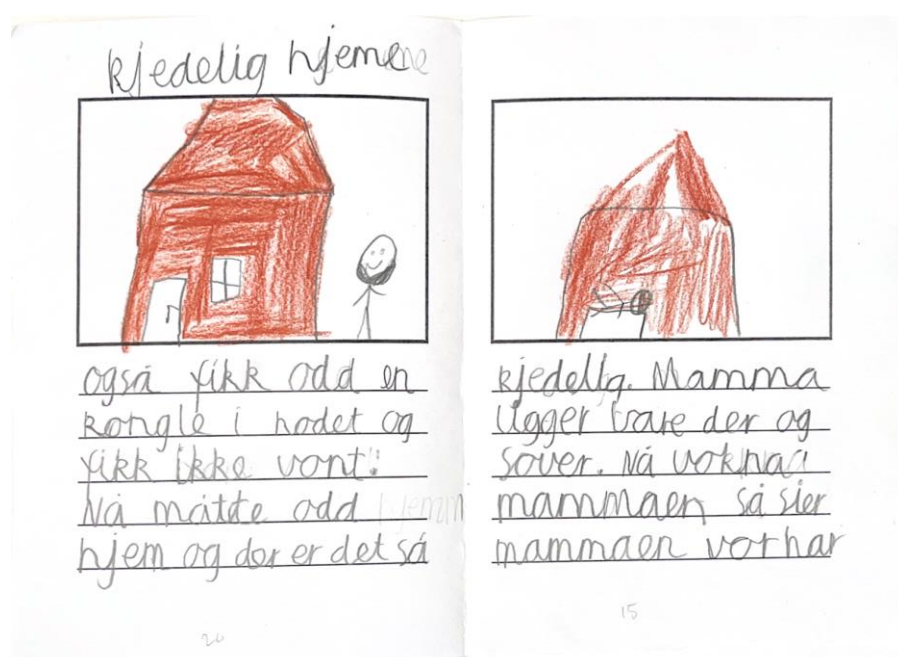 kjedelig hjeme
også fikk odd en
kongle i hodet og
fikk ikke vont!
Nå måtte odd
hjem og der er det så
20
kjedelig. Mamma
ligger bare der og
sover. Nå voknaa
mammaen så sier
mammaen vor har
15